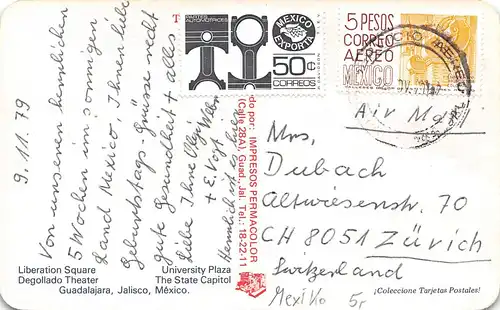 9.11.79
Von unseren herrlichen
5 Wochen im sonnigen
Land Mexico, Ihnen liebe
Geburtstags-Grüsse recht
gute Gesundheit + alles
Liebe Ihre
+ E. Vogt
Herrlich ist es hier
Liberation Square
Degollado Theater
University Plaza
The State Capitol
Guadalajara, Jalisco, México.
do por: IMPRESOS PERMACOLOR
(Calle 28A), Guad., Jal. Tel.: 18-22-11
PARTES
AUTOMOTRICES
MEXICO
EXPORTA
50¢
CORREOS
5 PESOS
CORREO
AEREO
MEXICO
Air Mail
Mrs.
Dubach
Altwiesenstr. 70
CH 8051 Zürich
Switzerland
Mexiko 5r
¡Coleccione Tarjetas Postales!